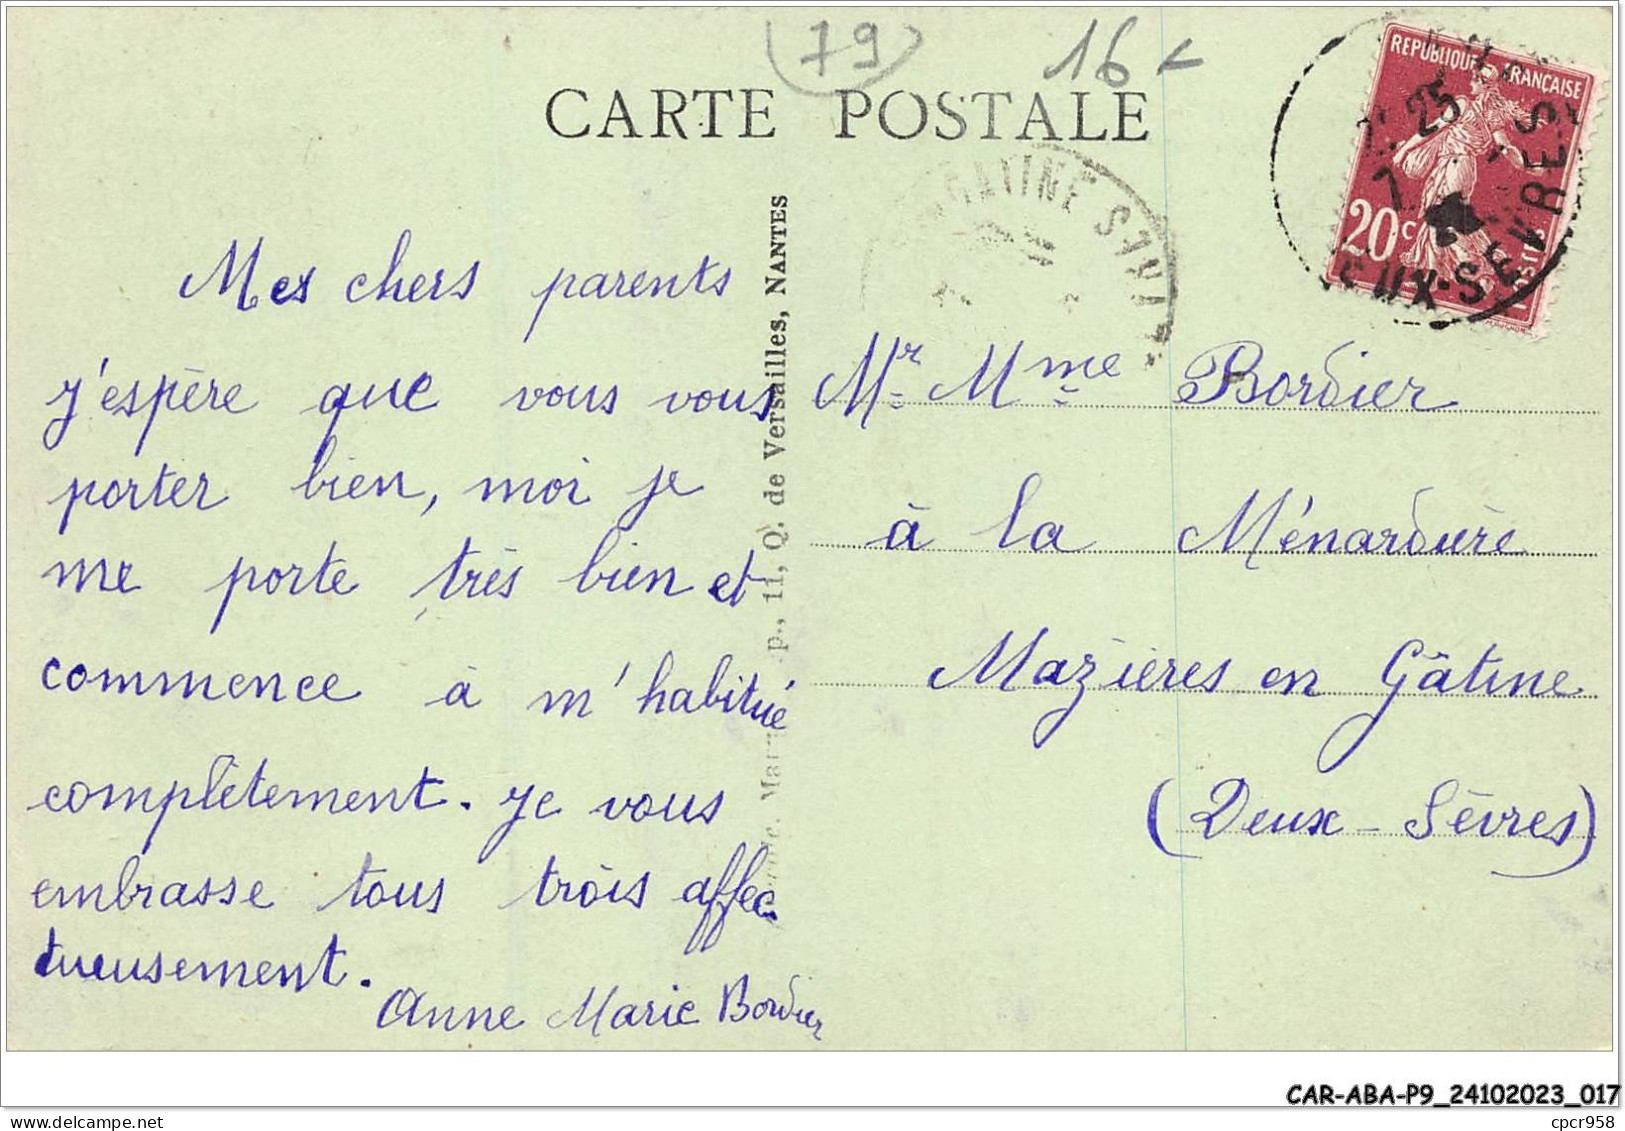 (79)
16
CARTE POSTALE
REPUBLIQUE FRANÇAISE
25
20c
POSTES
EUX-SEVRES
GATINE
Q. de Versailles, NANTES
Mes chers parents
j'espère que vous vous
porter bien, moi je
me porte très bien et
commence à m'habitué
complètement. Je vous
embrasse tous trois affec-
tueusement.
Anne Marie Bordier
Mr Mme Bordier
à la Ménardière
Mazières en Gâtine
(Deux-Sèvres)
CAR-ABA-P9_24102023_017
cpcr958